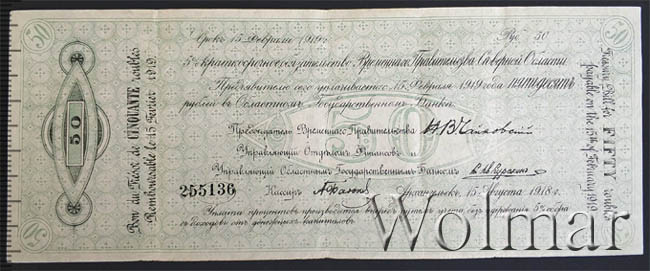 50
50
Срокъ 15 Февраля 1919 г.
Руб. 50
5% краткосрочное обязательство Временнаго Правительства Северной Области
Предъявителю сего уплачивается 15 Февраля 1919 года пятьдесятъ
рублей въ Областномъ Государственномъ Банкѣ.
50
Председатель Временнаго Правительства Н В Чайковский
Управляющий Отделомъ Финансовъ и
Управляющий Областнымъ Государственнымъ Банкомъ
255136
Кассиръ
Архангельскъ, 15 Августа 1918 г.
Уплата процентовъ производится впередъ путемъ учета безъ удержания 5% сбора
с доходовъ отъ денежныхъ капиталовъ.
Bon du Trésor de CINQUANTE roubles
Remboursable le 15 Fevrier 1919.
Treasury Bill for FIFTY roubles
payable on the 15th of February 1919
50
50
50
Wolmar